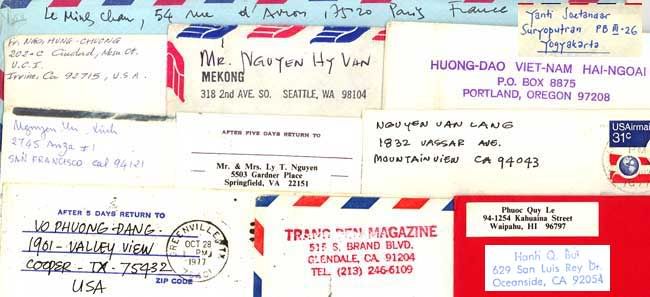 Le Minh Chau, 54 rue d'Avron, 75020 Paris France
Fr. NGO, HUNG-CHUONG
202-C Ciudad, Mesa Ct.
U.C.I
Irvine, Ca 92715, U.S.A.
MR. NGUYEN HY VAN
MEKONG
318 2nd AVE. SO. SEATTLE, WA 98104
Yanti Soetanaar
Suryoputran PB III-26
Yogyakarta
HUONG-DAO VIET-NAM HAI-NGOAI
P.O. BOX 8875
PORTLAND, OREGON 97208
Nguyen
2745 Anza #1
SAN FRANCISCO cal 94121
AFTER FIVE DAYS RETURN TO
Mr. & Mrs. Ly T. Nguyen
5503 Gardner Place
Springfield, VA 22151
NGUYEN VAN LANG
1832 VASSAR AVE.
MOUNTAIN VIEW CA 94043
USAirmail
31c
PM
1977
AFTER 5 DAYS RETURN TO
VO PHUONG-DANG.
1901-VALLEY VIEW
COOPER-TX-75432
USA
ZIP CODE
GREENVILLE TX
OCT 28
PM
1977
TRANG DEN MAGAZINE
515 S. BRAND BLVD.
GLENDALE, CA 91204
TEL. (213) 246-6109
Phuoc Quy Le
94-1254 Kahuaina Street
Waipahu, HI 96797
Hanh Q. Bui
629 San Luis Rey Dr.
Oceanside, CA 92054